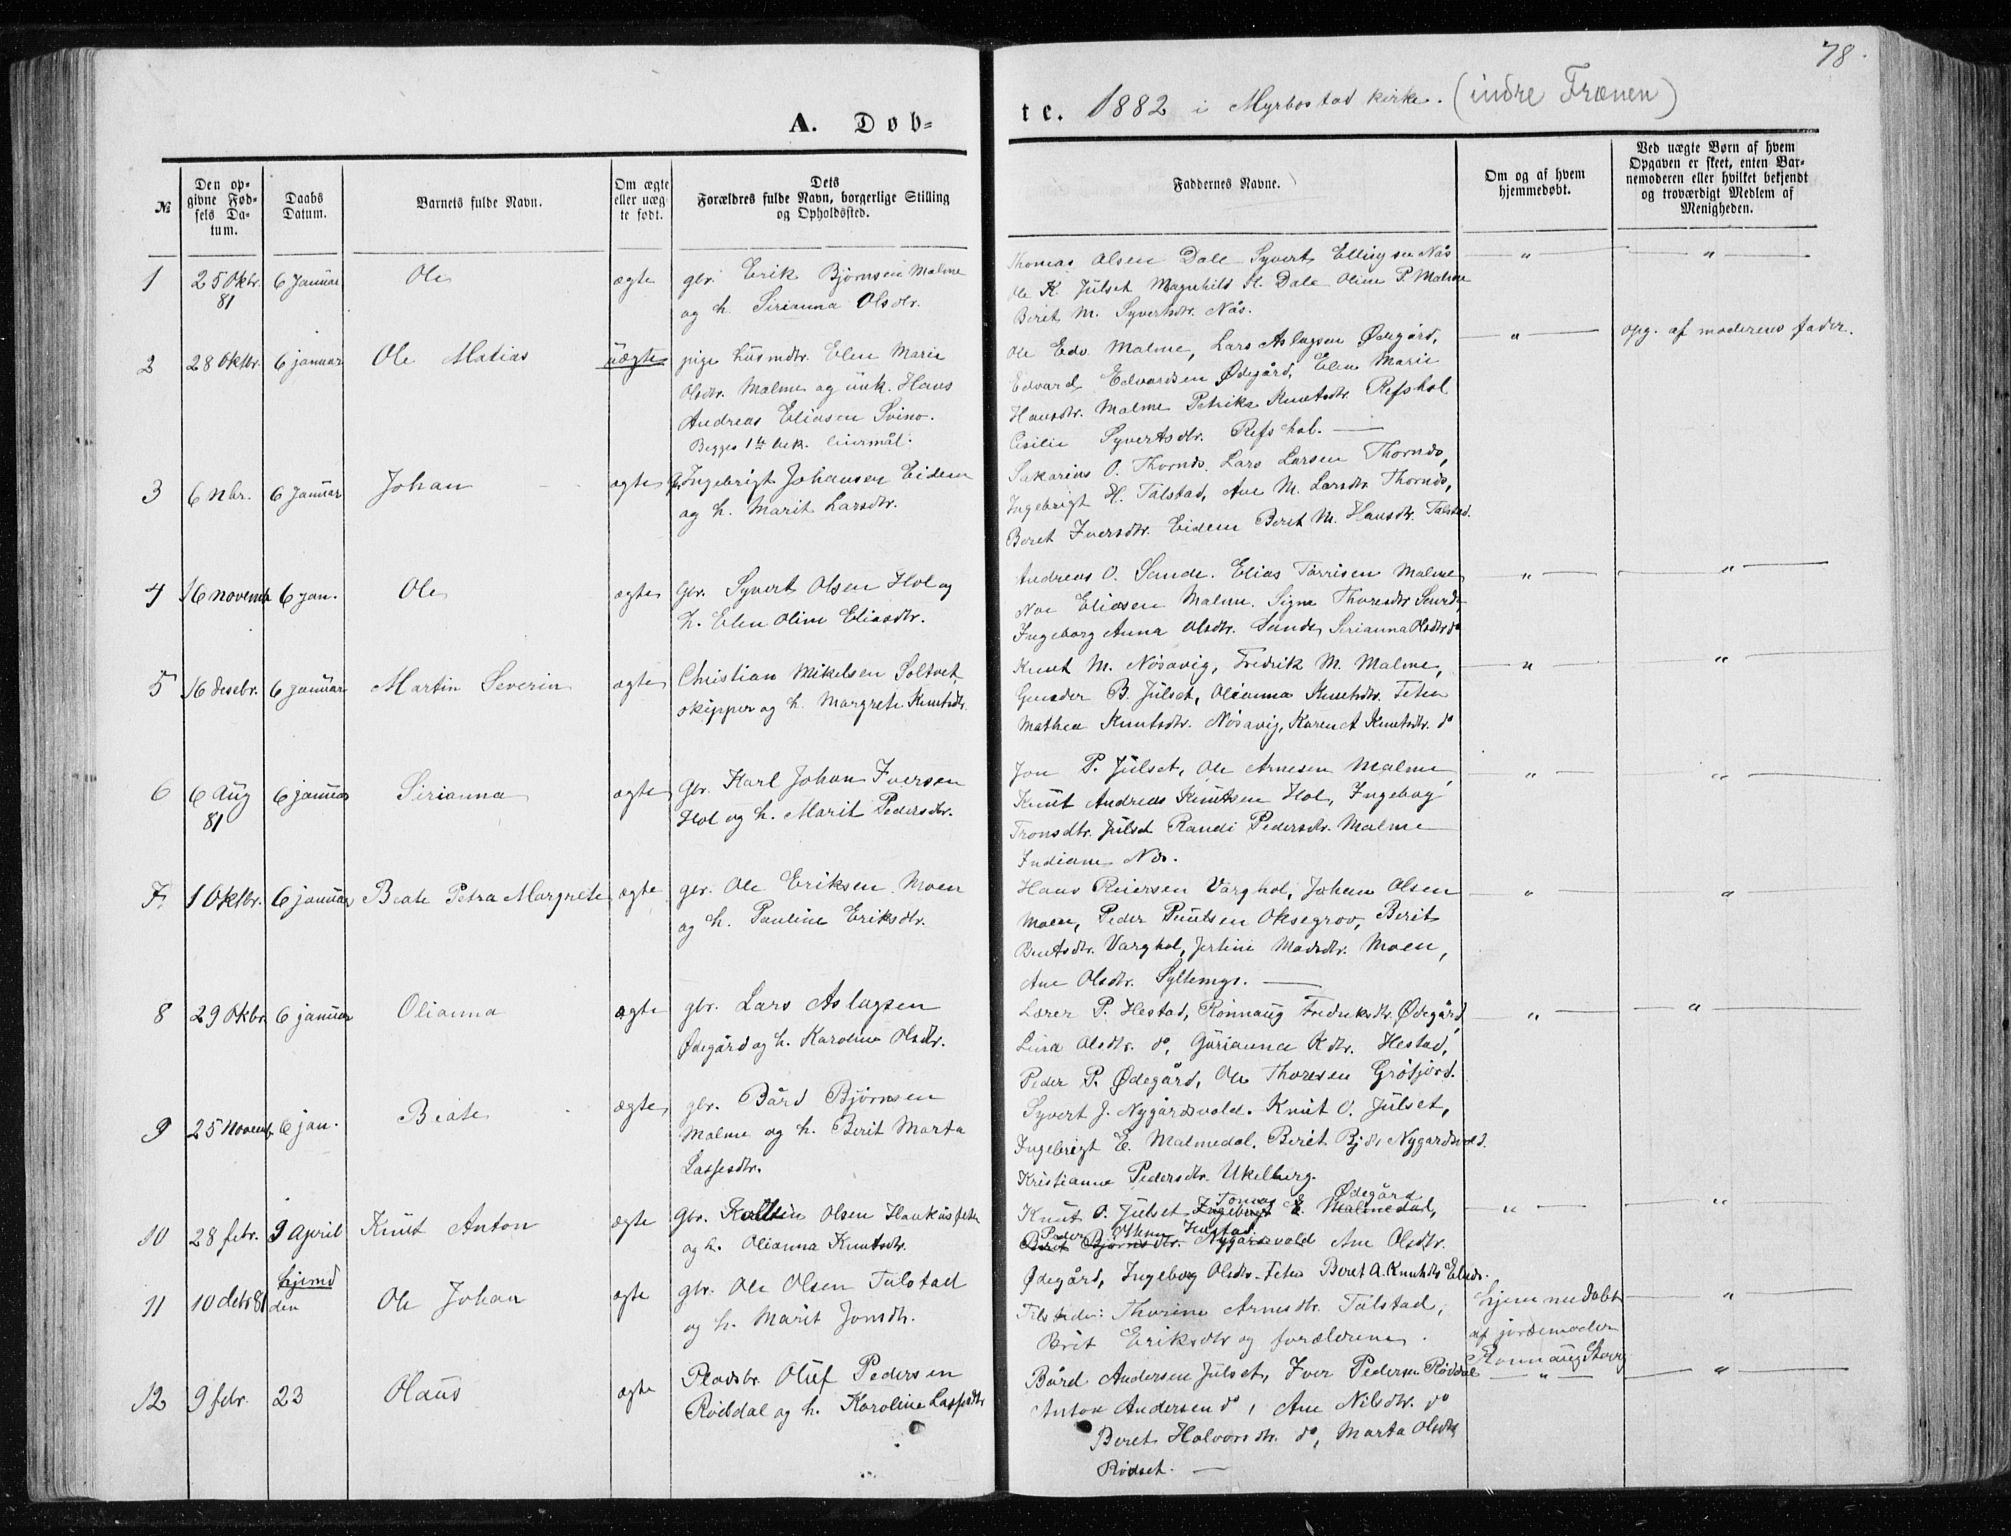 78.
A. Døb-
te. 1882 i Myrbostad kirke. (indre Frænen)
№
Den op-
givne Fød-
sels Da-
tum.
Daabs
Datum.
Barnets fulde Navn.
Om ægte
eller uæg-
te født.
Dets
Forældres fulde Navn, borgerlige Stilling
og Opholdssted.
Faddernes Navne.
Om og af hvem
hjemmedøbt.
Ved uægte Børn af hvem
Opgaven er skeet, enten Bar-
nemoderen eller hvilket bekjendt
og troværdigt Medlem af
Menigheden.
1 25 Oktbr. 81 6 Januar Ole ægte gbr. Erik Bjørnsen Malme
og h. Sirianna Olsdtr.
Thomas Olsen Dale Syvert Ellingsen Nås
Ole K. Julset Magnhild H. Dale Oline P. Malme
Berit M. Syvertsdtr. Nås.
2 28 Oktbr. 6 januar Ole Matias uægte pige husmdtr. Elen Marie
Olsdtr. Malme og unk. Hans
Andreas Eliasen Svino.
Begges 1ste bek. leiermål.
Ole Edv. Malme, Lars Aslagsen Ødegård,
Edvard Edvardsen Ødegård, Elen Marie
Hansdtr. Malme Petrika Knutsdtr. Refshol
Cecilie Syvertsdtr. Refshol.
opg. af moderens fader.
3 6 Nbr. 6 Januar Johan ægte Ingebrigt Johansen Eidem
og h. Marit Larsdtr.
Sakarias O. Thornes. Lars Larsen Thornes,
Ingebrigt H. Talstad, Ane M. Larsdtr. Thornes,
Beret Iversdtr. Eidem Beret M. Hansdtr. Talstad.
4 16 novemb. 6 jan. Ole ægte Gbr. Syvert Olsen Hol og
h. Elen Oline Eliasdtr.
Andreas O. Sande. Elias Tørrisen Malme
Noe Eliasen Malme. Signe Thoresdtr. Sande
Ingeborg Anna Olsdtr. Sande, Sirianna Olsdtr. do
5 16 desebr. 6 januar Martin Severin ægte Christian Mikelsen Soltvet,
skipper og h. Margrete Knutsdtr.
Knut M. Nøsavig, Fredrik M. Malme,
Gunder B. Julset, Olianna Knutsdtr. Feten
Mathea Knutsdtr. Nøsavig, Karen A Knutsdtr. do
6 6 Aug 81 6 januar Sirianna ægte Gbr. Karl Johan Iversen
Hol og h. Marit Pedersdtr.
Jon P. Julset, Ole Arnesen Malme
Knut Andreas Knutsen Hol, Ingebog
Tronsdtr. Julset Randi Pedersdtr. Malme
7. 1 Oktbr. 6 januar Beate Petra Margrete ægte gbr. Ole Eriksen Moen
og h. Pauline Eriksdtr.
Hans Reiersen Varghol, Johan Olsen
Moen, Peder Knutsen Oksegrov, Berit
Berntsdtr. Varghol, Jertine Madsdtr. Moen,
Ane Olsdtr. Syltemyr.
8 29 Okbr. 6 januar Olianna ægte gbr. Lars Aslagsen
Ødegård og h. Karoline Olsdtr.
Lærer P. Hestad, Rønnaug Fredriksdtr. Ødegård
Lina Olsdtr. do, Gurianna Kdtr. Hestad,
Peder P. Ødegård, Ole Thoresen Gråfjord.
9 25 Novemb. 6 jan. Beate ægte gbr. Bård Bjørnsen
Malme og h. Berit Marta
Lassesdtr.
Syvert J. Nygårdsvold. Knut O. Julset,
Ingebrigt E. Malmedal. Berit Bj.d. Nygardsvold.
Kristianne Pedersdtr. Ukelberg.
10 28 febr. 9 April Knut Anton ægte Gbr. Kolbein Olsen Haukåsfeten
og h. Olianna Knutsdtr.
Tomas Ødegård
Knut O. Julset Ingebrigt E. Malmedal,
Peder Hestad
Beret Bjørnsdtr. Nygårdsvold Ane Olsdtr.
Ødegård, Ingeborg Olsdtr. Feten Beret A. Knutsdtr.
11 10 debr 81 hjemd
den Ole Johan ægte gbr. Ole Olsen Talstad
og h. Marit Jonsdtr.
Tilstede: Thorine Arnesdtr. Talstad,
Brit Eriksdtr. og forældrene.
hjemmedøbt
af jordemoder
Rønnaug Stavig
12 9 febr. 23 Olaus ægte Pladsbr. Oluf Pedersen
Rødal og h. Karoline Lassesdtr.
Bård Andersen Julset, Iver Pedersen Røddal
Anton Andersen do, Ane Nilsdtr. do
Beret Halvorsdtr. do, Marta Olsdtr.
Rødset.